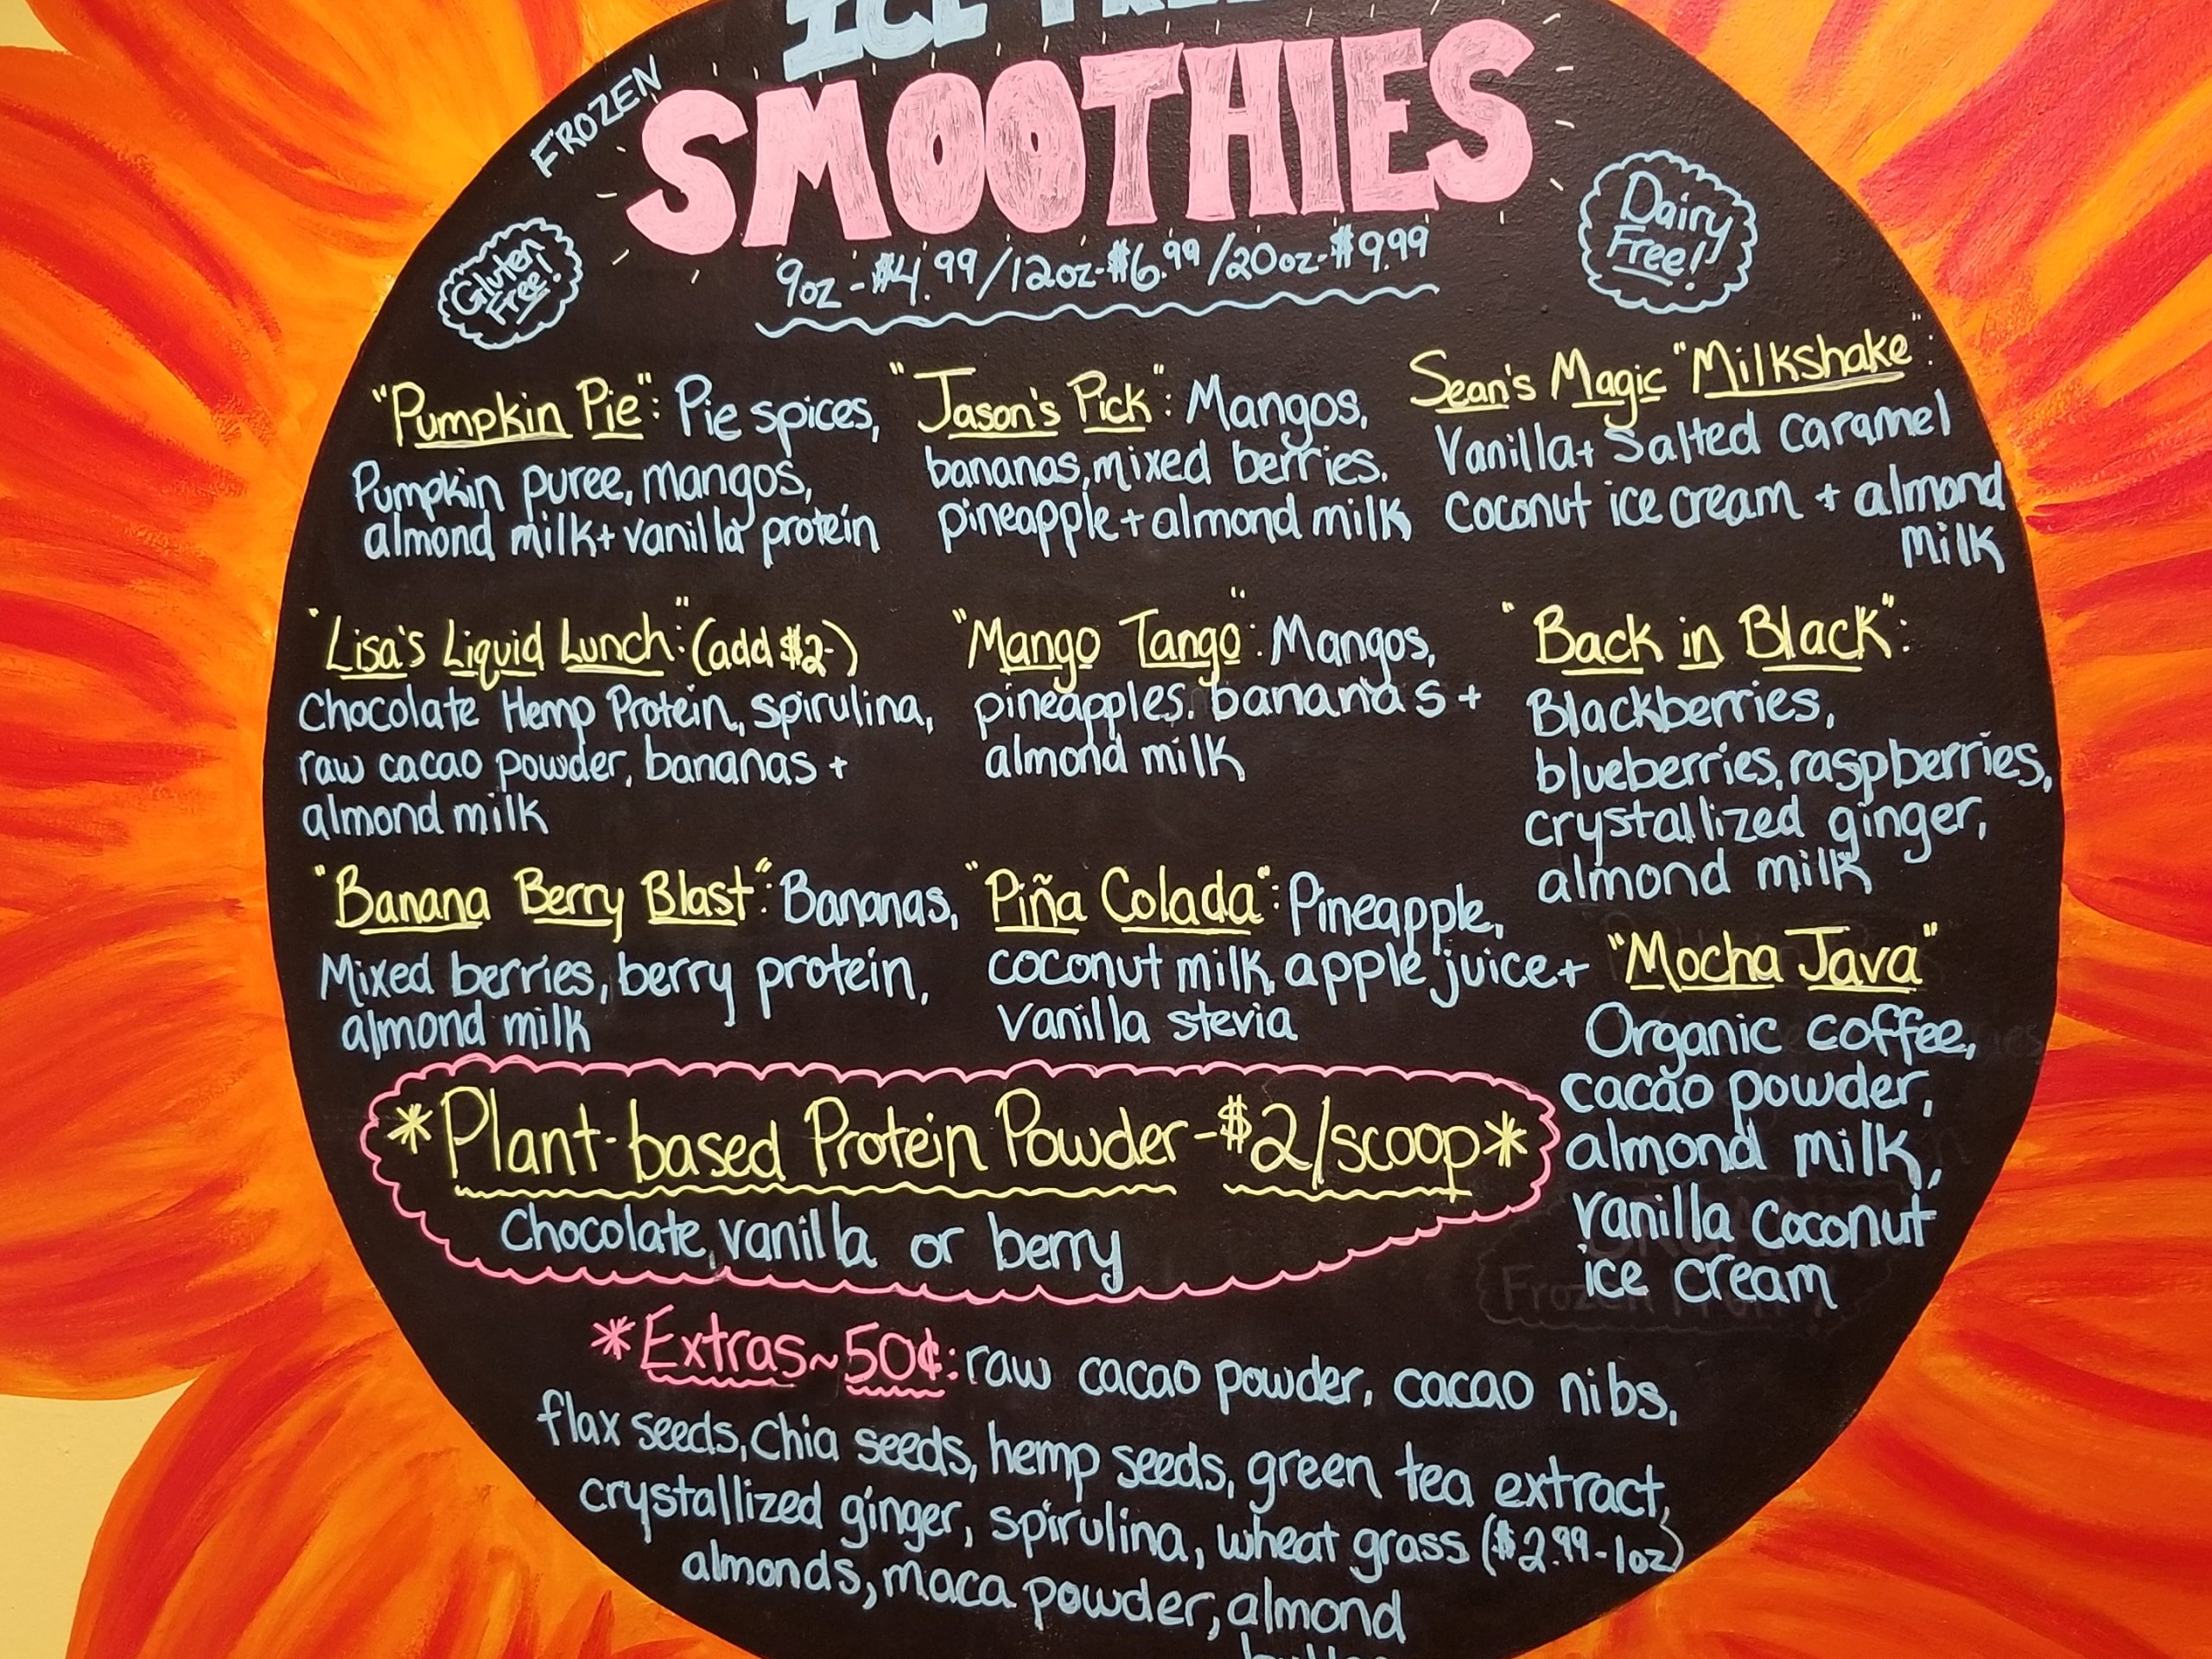 ICE
FROZEN
SMOOTHIES
9oz-$4.99/12oz-$6.99/20oz-$9.99
Gluten
Free!
Dairy
Free!
"Pumpkin Pie": Pie spices,
Pumpkin puree, mangos,
almond milk+vanilla protein
"Jason's Pick": Mangos,
bananas, mixed berries.
pineapple+almond milk
Sean's Magic "Milkshake":
Vanilla+ Salted Caramel
coconut ice cream + almond
milk
"Lisa's Liquid Lunch": (add $2-)
Chocolate Hemp Protein, spirulina,
raw cacao powder, bananas +
almond milk
"Mango Tango": Mangos,
pineapples. bananas +
almond milk
"Back in Black":
Blackberries,
blueberries, raspberries,
crystallized ginger,
almond milk
"Banana Berry Blast": Bananas,
Mixed berries, berry protein,
almond milk
"Piña Colada": Pineapple,
coconut milk, apple juice+
vanilla stevia
"Mocha Java"
Organic coffee,
cacao powder,
almond milk,
vanilla coconut
ice cream
*Plant-based Protein Powder-$2/scoop*
Chocolate, vanilla or berry
*Extras~50¢: raw cacao powder, cacao nibs,
flax seeds, chia seeds, hemp seeds, green tea extract,
crystallized ginger, spirulina, wheat grass ($2.99-1oz)
almonds, maca powder, almond